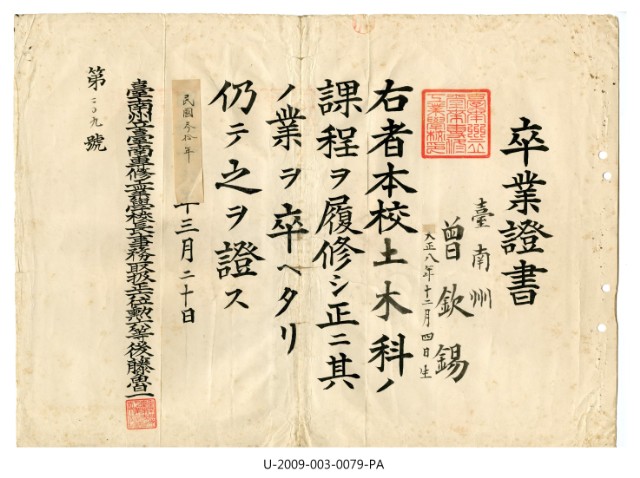 卒業證書
臺南州
曾欽錫
大正八年十二月四日生
右者本校土木科ノ
課程ヲ履修シ正ニ其
ノ業ヲ卒ヘタリ
仍テ之ヲ證ス
民國叁拾年
十三月二十日
臺南州立臺南專修工業學校長事務取扱正七位勲六等後藤魯一
第二〇九號
U-2009-003-0079-PA